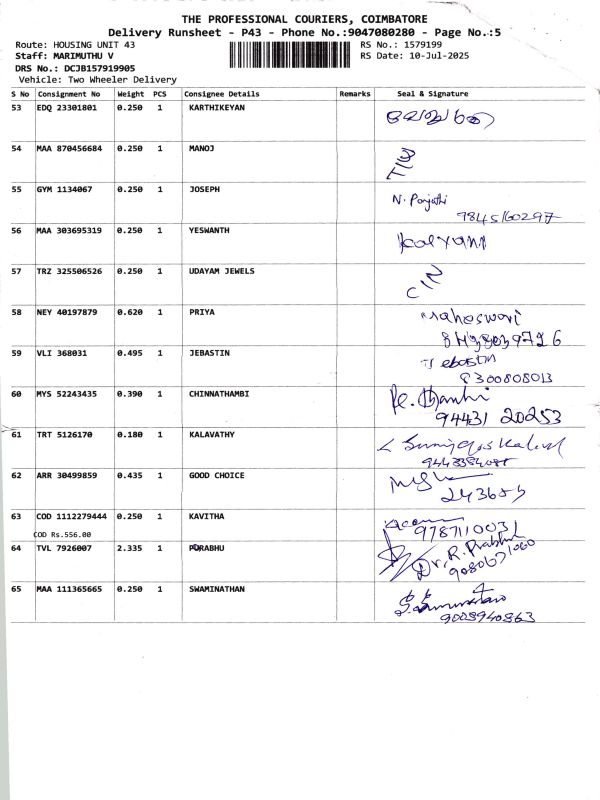 THE PROFESSIONAL COURIERS, COIMBATORE
Delivery Runsheet - P43 - Phone No.:9047080280 - Page No.:5
Route: HOUSING UNIT 43 RS No.: 1579199
Staff: MARIMUTHU V RS Date: 10-Jul-2025
DRS No.: DCJB157919905
Vehicle: Two Wheeler Delivery
S No Consignment No Weight PCS Consignee Details Remarks Seal & Signature
53 EDQ 23301801 0.250 1 KARTHIKEYAN
54 MAA 870456684 0.250 1 MANOJ
55 GYM 1134067 0.250 1 JOSEPH N.
9845160297
56 MAA 303695319 0.250 1 YESWANTH Kalyani
57 TRZ 325506526 0.250 1 UDAYAM JEWELS
58 NEY 40197879 0.620 1 PRIYA
59 VLI 368031 0.495 1 JEBASTIN
8300808013
60 MYS 52243435 0.390 1 CHINNATHAMBI
94431 20253
61 TRT 5126170 0.180 1 KALAVATHY
62 ARR 30499859 0.435 1 GOOD CHOICE
243685
63 COD 1112279444 0.250 1 KAVITHA
9787110031
COD Rs.556.00
64 TVL 7926007 2.335 1 PURABHU Dr.R. Prabhu
65 MAA 111365665 0.250 1 SWAMINATHAN
9003940863